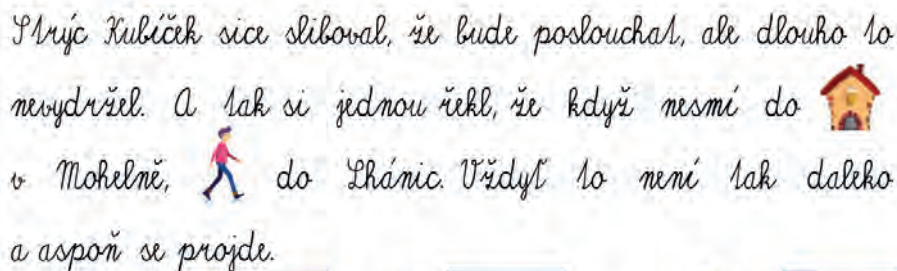 Strýc Kubíček sice sliboval, že bude poslouchat, ale dlouho to
nevydržel. A tak si jednou řekl, že když nesmí do
v Mohelně, do Lhánic. Vždyť to není tak daleko
a aspoň se projde.